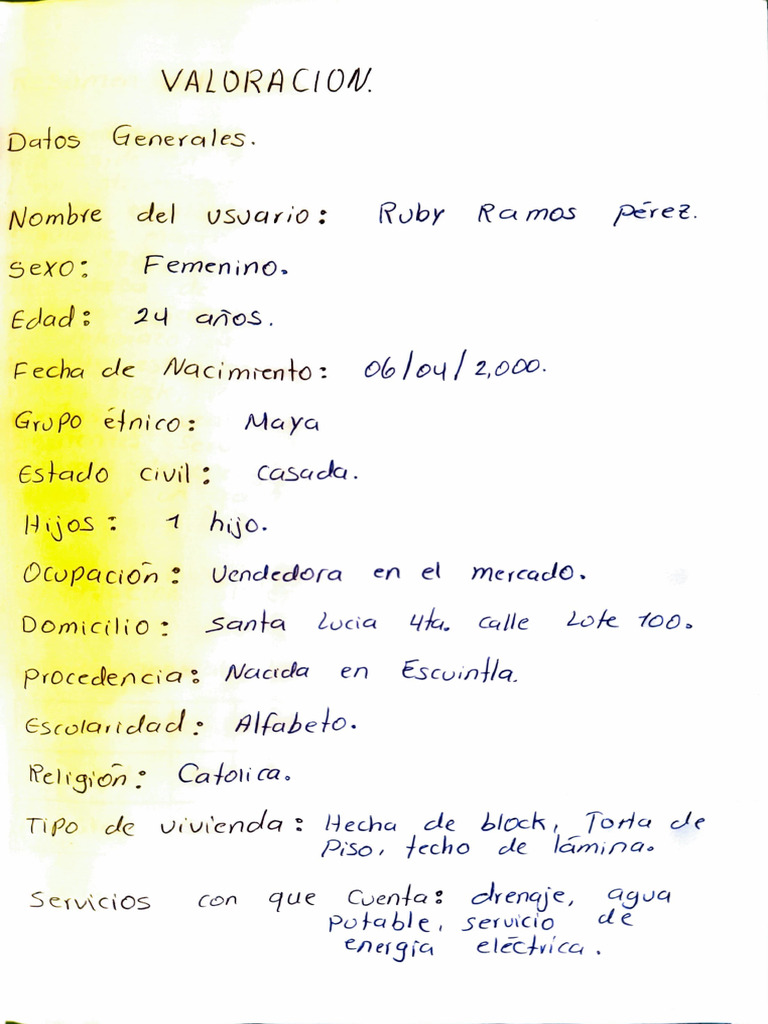 VALORACION.
Datos Generales.
Nombre del usuario: Ruby Ramos Pérez.
Sexo: Femenino.
Edad: 24 años.
Fecha de Nacimiento: 06/04/2,000.
Grupo étnico: Maya
Estado civil: casada.
Hijos: 1 hijo.
Ocupación: Vendedora en el mercado.
Domicilio: Santa Lucia 4ta. calle Lote 100.
Procedencia: Nacida en Escuintla.
Escolaridad: Alfabeto.
Religión: Catolica.
Tipo de vivienda: Hecha de block, Torta de
Piso, techo de lámina.
Servicios con que cuenta: drenaje, agua
potable, servicio de
energía eléctrica.